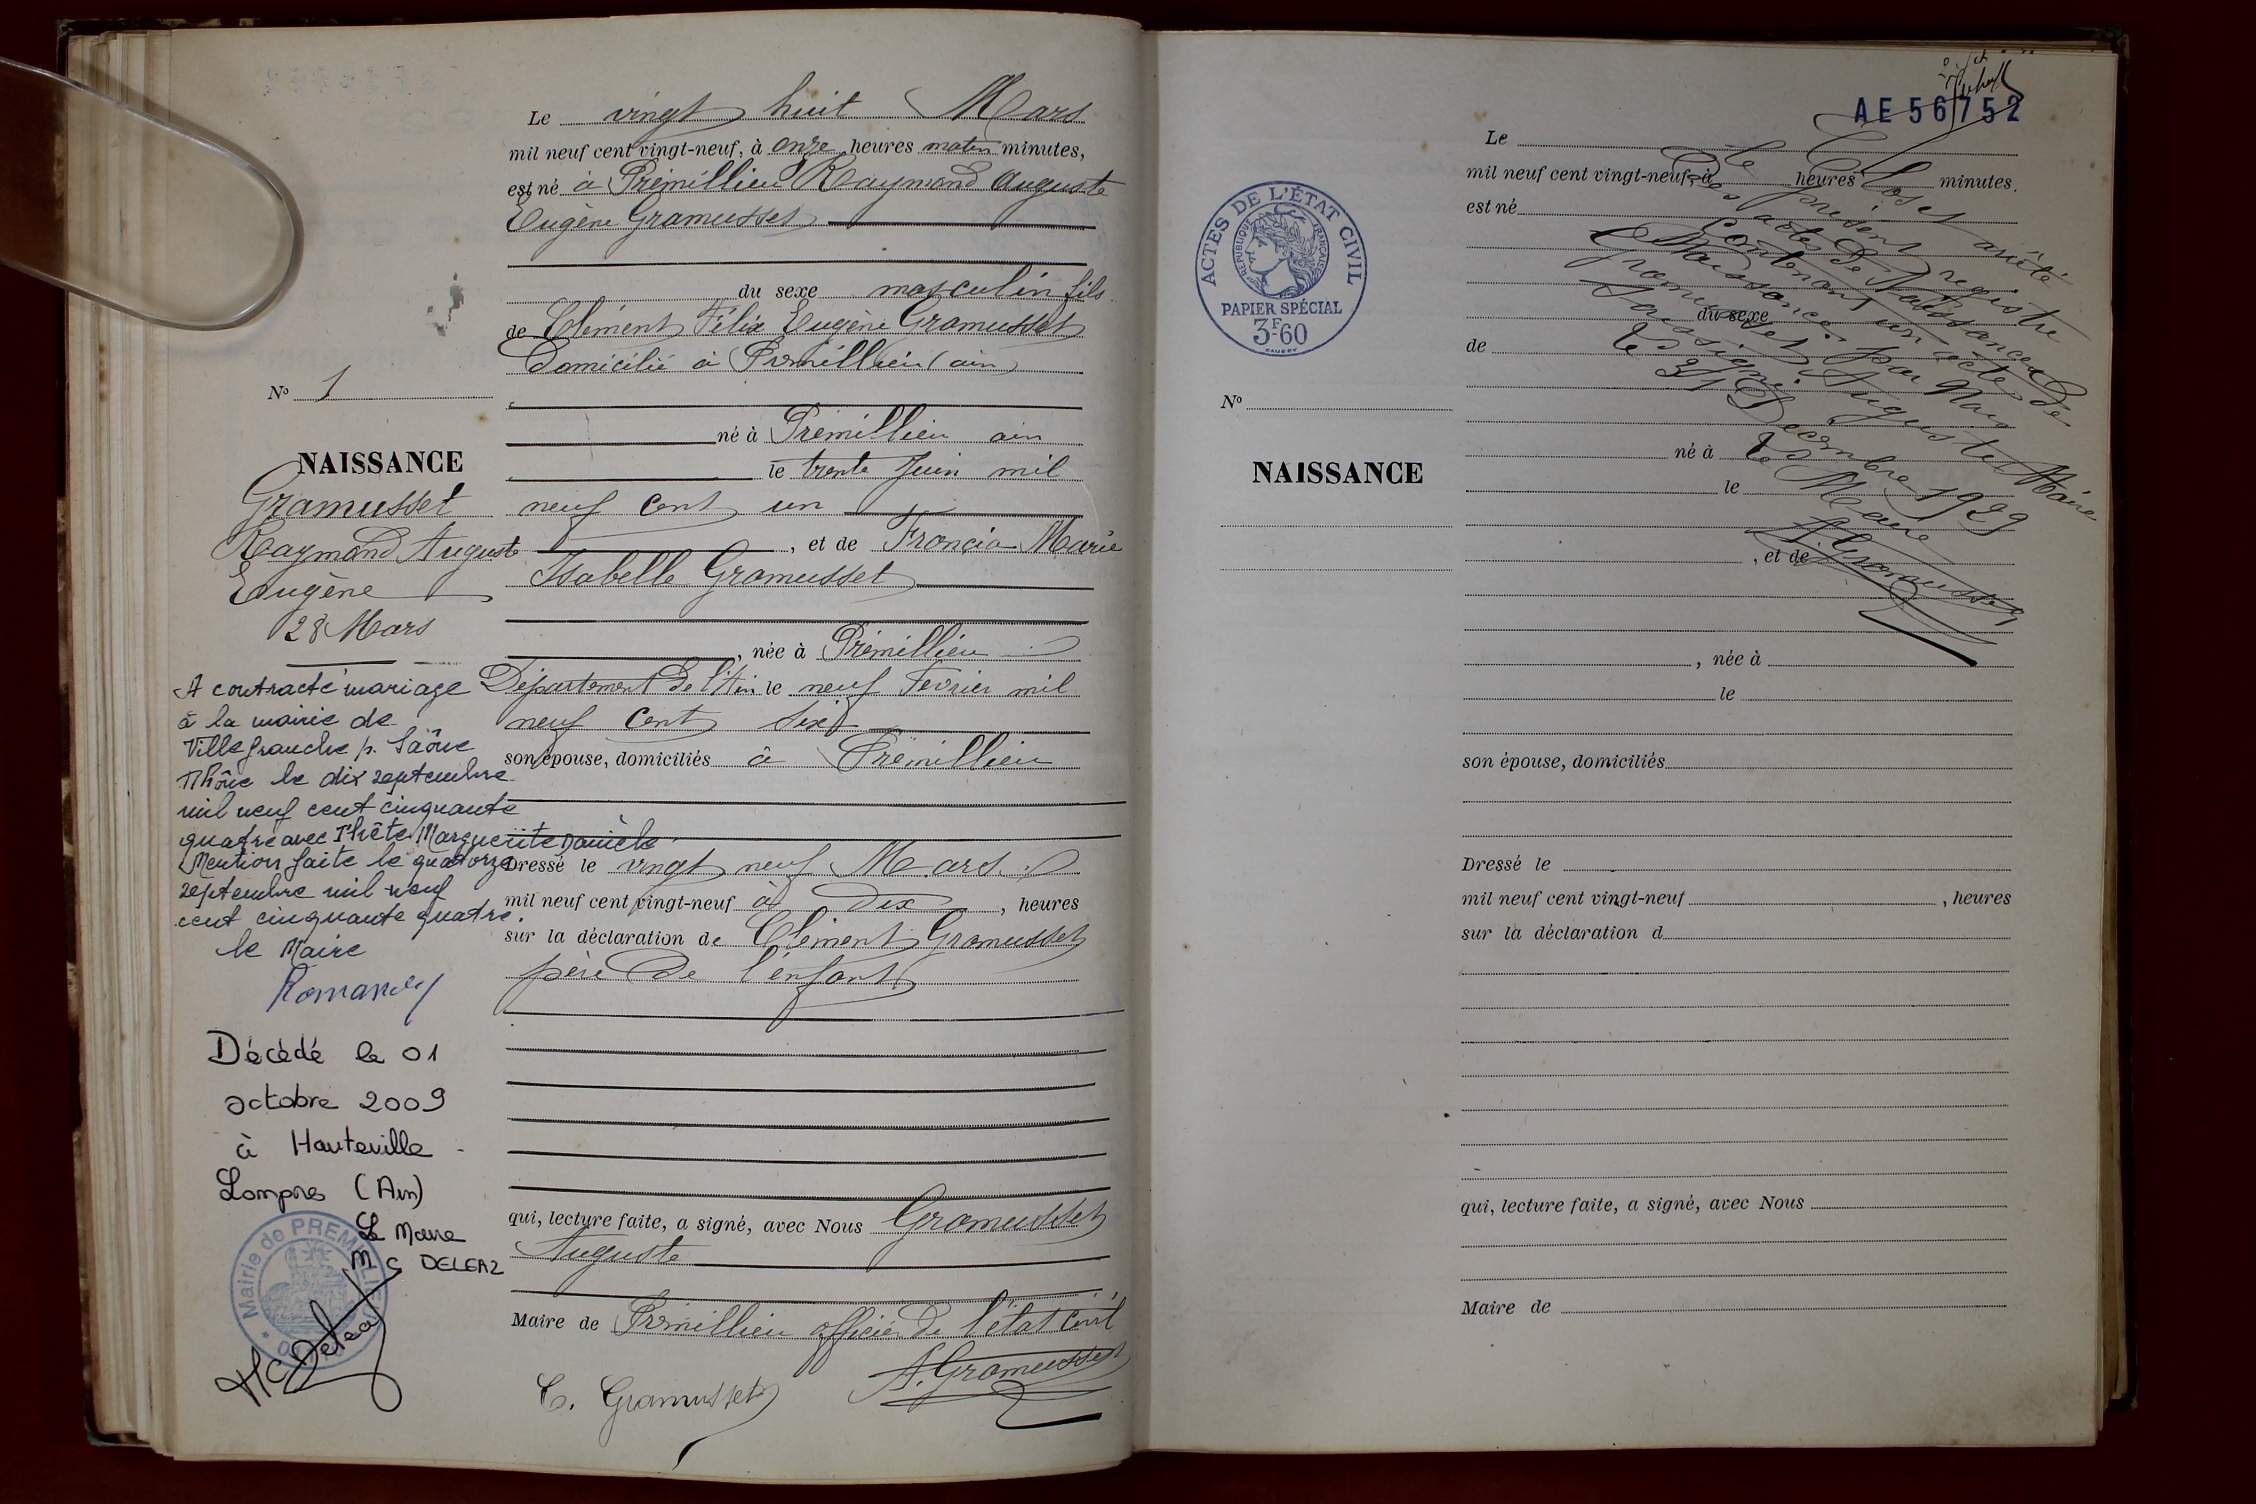 Le vingt huit Mars
mil neuf cent vingt-neuf, à onze heures matin minutes,
est né à Prémillieu Raymond Auguste
Eugène Gramusset
du sexe masculin fils
de Clément Félix Eugène Gramusset
domicilié à Prémillieu (ain)
né à Prémillieu ain
le trente Juin mil
neuf cent un
, et de Francia Marie
Isabelle Gramusset
, née à Prémillieu
Département de l'Ain le neuf Fevrier mil
neuf cent six
son épouse, domiciliés à Prémillieu
Dressé le vingt neuf Mars
mil neuf cent vingt-neuf à dix , heures
sur la déclaration de Clément Gramusset
père de l'enfant
qui, lecture faite, a signé, avec Nous Gramusset
Auguste
Maire de Prémillieu officier de l'état civil
C. Gramusset A. Gramusset
No 1
NAISSANCE
Gramusset
Raymond Auguste
Eugène
28 Mars
A contracté mariage
à la mairie de
Villefranche s. Saône
Rhône le dix septembre
mil neuf cent cinquante
quatre avec Thête Marguerite Danièle
Mention faite le quatorze
septembre mil neuf
cent cinquante quatre.
le Maire
Décédé le 01
octobre 2009
à Hauteville
Lompnes (Ain)
Le Maire
M C DELEAZ
Mairie de PREMILLIEU
MC Deleaz
AE 56752
ACTES DE L'ÉTAT CIVIL
RÉPUBLIQUE FRANÇAISE
PAPIER SPÉCIAL
3F60
No
NAISSANCE
Le
mil neuf cent vingt-neuf, à heures minutes.
est né
du sexe
de
né à
le
, et de
, née à
le
son épouse, domiciliés
Dressé le
mil neuf cent vingt-neuf , heures
sur la déclaration d
qui, lecture faite, a signé, avec Nous
Maire de
Clos et arrêté
le présent registre
des actes de Naissances
contenant un acte de
Naissance par Nous
Gramusset Auguste Maire
soussigné
le 31 Decembre 1929
le Maire
A. Gramusset